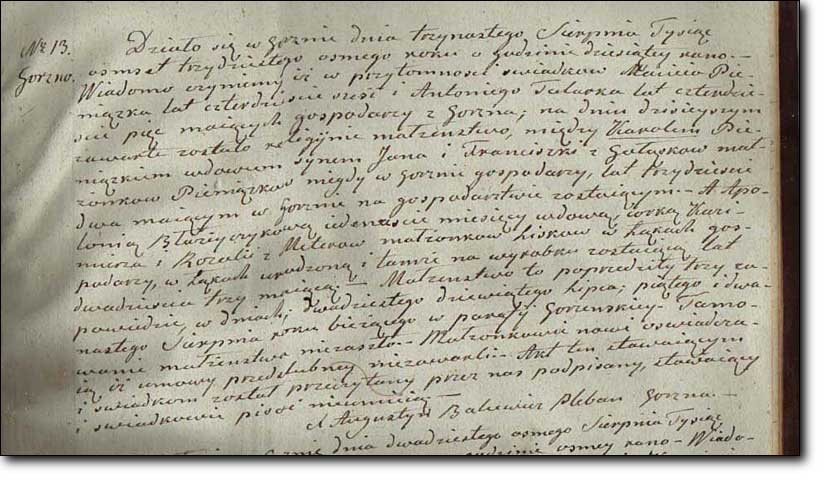 Nr 13.
Gorzno.
Działo się w Gorznie dnia trzynastego Sierpnia Tysiąc
osmset trzydziestego osmego roku o godzinie dziesiątey rano.—
Wiadomo czyniemy iż w przytomności swiadków Macieia Pie-
niązka lat czterdzieście sześć i Antoniego lat czterdzie-
ście pięć maiących gospodarzy z Gorzna; na dniu dzisieyszym
zawarte zostało religijnie małżenstwo, między Karolem Pie-
niązkiem wdowcem synem Jana i Franciszki z Gałązkow mał-
żonkow Pieniązkow niegdy w Gorznie gospodarzy, lat trzydzieście
dwa maiącym w Gorznie na gospodarstwie zostaiącym.— A Apo-
lonią Błażeyczykową iedenaście miesięcy wdową, corką Kazi-
mierza i Rozalii z małżonkow Liskow w Łąkach gos-
podarzy, w Łąkach urodzoną i tamże na wyrobku zostaiącą lat
dwadzieścia trzy maiącą.— Małżenstwo to poprzedziły trzy za-
powiedzie, w dniach; dwudziestego dziewiątego Lipca; piątego i dwu-
nastego Sierpnia roku bieżącego w parafii Gorzenskiey— Tamo-
wanie małżenstwa niezaszło— Małżonkowie nowi oswiadcza-
ią iż umowy przedslubney niezawarli— Akt ten stawaiącym
i swiadkom został przeczytany przez nas podpisany, stawaiący
i swiadkowie pisać nieumieią—
X Augustyn Balewicz Pleban Gorzna.—
dnia dwudziestego osmego Sierpnia Tysiąc
osmey rano— Wiado-